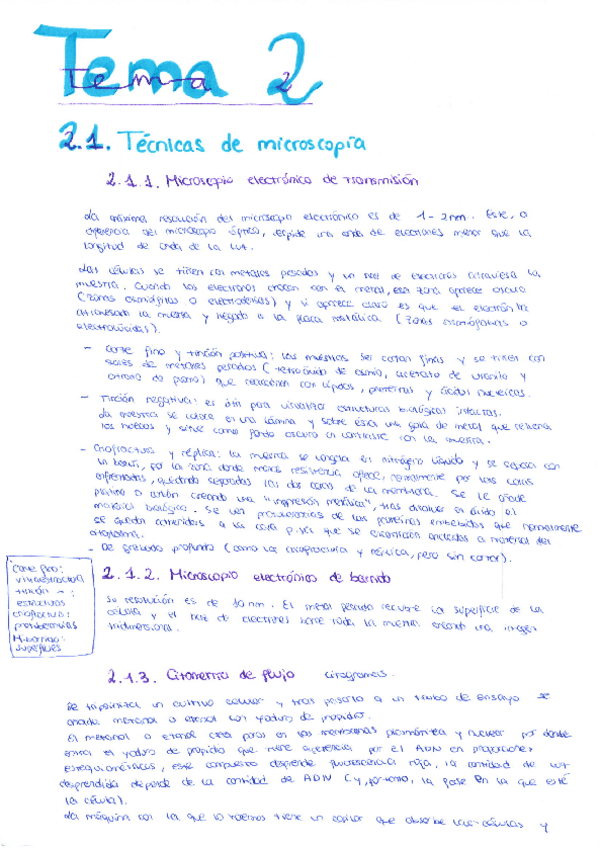 Tema 2
Tema 2
2.1. Técnicas de microscopía
2.1.1. Microscopio electrónico de transmisión
La máxima resolución del microscopio electrónico es de 1-2nm. Este, a
diferencia del microscopio óptico, expide una onda de electrones menor que la
longitud de onda de la luz.
Las células se tiñen con metales pesados y un haz de electrones atraviesa la
muestra. Cuando los electrones chocan con el metal, esa zona aparece oscura
(zonas osmiófilas o electrodensas) y si aparece claro es que el electrón ha
atravesado la muestra y llegado a la placa metálica (zonas osmiófobas o
electrolúcidas).
- Corte fino y tinción positiva: las muestras se cortan finas y se tiñen con
sales de metales pesados (tetróxido de osmio, acetato de uranilo y
citrato de plomo) que reaccionan con lípidos, proteínas y ácidos nucleicos.
- Tinción negativa: es útil para visualizar estructuras biológicas intactas.
La muestra se coloca en una lámina y sobre ésta una gota de metal que rellena
los huecos y sirve como fondo oscuro en contraste con la muestra.
- Criofractura y réplica: la muestra se congela en nitrógeno líquido y se separa con
un bisturí, por la zona donde menos resistencia ofrece, normalmente por las caras
enfrentadas, quedando separadas las dos caras de la membrana. Se le añade
platino o carbón creando una "impresión metálica", tras disolver en ácido el
material biológico. Se ven protuberancias de las proteínas embebidas que normalmente
se quedan contenidas a la cara p. ya que se encuentran ancladas a material del
citoplasma.
- De grabado profundo (como la criofractura y réplica, pero sin cortar).
Corte fino:
ultraestructura
tinción -:
estructuras
criofractura:
protuberancias
M. barrido:
superficies
2.1.2. Microscopio electrónico de barrido
Su resolución es de 10nm. El metal pesado recubre la superficie de la
célula y el haz de electrones barre toda la muestra creando una imagen
tridimensional.
2.1.3. Citometría de flujo citogramas.
Se tripsiniza un cultivo celular y tras pasarlo a un tubo de ensayo se
añade metanol o etanol con yoduro de propidio.
El metanol o etanol crea poros en las membranas plasmática y nuclear por donde
entra el yoduro de propidio que tiene apetencia por el ADN en proporciones
estequiométricas, este compuesto desprende fluorescencia roja, la cantidad de luz
desprendida depende de la cantidad de ADN (y, por tanto, la fase en la que esté
la célula).
La máquina con la que lo hacemos tiene un capilar que absorbe las células y